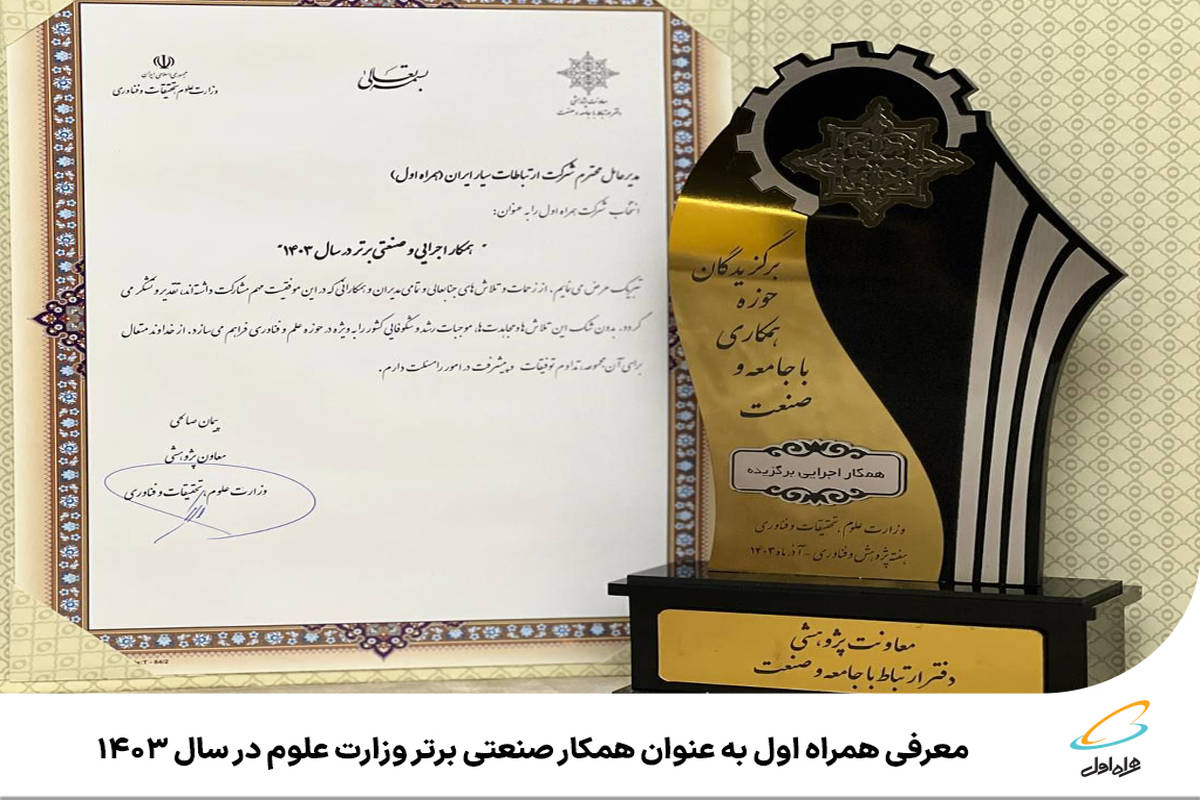 بسمه تعالی
جمهوری اسلامی ایران
وزارت علوم، تحقیقات و فناوری
معاونت پژوهشی
دفتر ارتباط با جامعه و صنعت
مدیرعامل محترم شرکت ارتباطات سیار ایران (همراه اول)
انتخاب شرکت همراه اول را به عنوان:
" همکار اجرایی و صنعتی برتر در سال ۱۴۰۳"
تبریک عرض می نمایم. از زحمات و تلاش های جنابعالی و تمامی مدیران و همکارانی که در این موفقیت مهم مشارکت داشته‌اند، تقدیر و تشکر می
گردد. بدون شک این تلاش ها و مجاهدت ها، موجبات رشد و شکوفایی کشور را به ویژه در حوزه علم و فناوری فراهم می سازد. از خداوند متعال
برای آن مجموعه، تداوم توفیقات و پیشرفت در امور را مسئلت دارم.
پیمان صالحی
معاون پژوهشی
وزارت علوم، تحقیقات و فناوری
برگزیدگان
حوزه
همکاری
با جامعه و
صنعت
همکار اجرایی برگزیده
وزارت علوم، تحقیقات و فناوری
هفته پژوهش و فناوری - آذرماه ۱۴۰۳
معاونت پژوهشی
دفتر ارتباط با جامعه و صنعت
معرفی همراه اول به عنوان همکار صنعتی برتر وزارت علوم در سال ۱۴۰۳
همراه اول